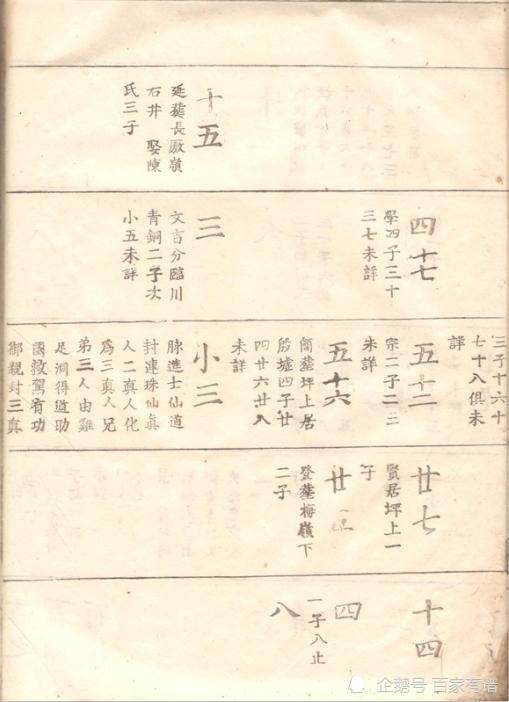 十五
延葬長廒嶺
石井 娶陳
氏三子
四十七
學四子三十
三七未詳
三
文吉分臨川
青銅二子次
小五未詳
三子十六十
七十八俱未
詳
五十二
宗二子二三
未詳
五十六
簡葬坪上居
殷墟四子廿
四廿六廿八
未詳
小三
脉進士仙道
封連珠仙眞
人二真人化
爲三真人兄
弟三人由難
足洞得道助
國救駕有功
御親封三真
廿七
賢居坪上一
子
廿一
登葬梅嶺下
二子
十四
四
一子八止
八
企鹅号 百家有谱